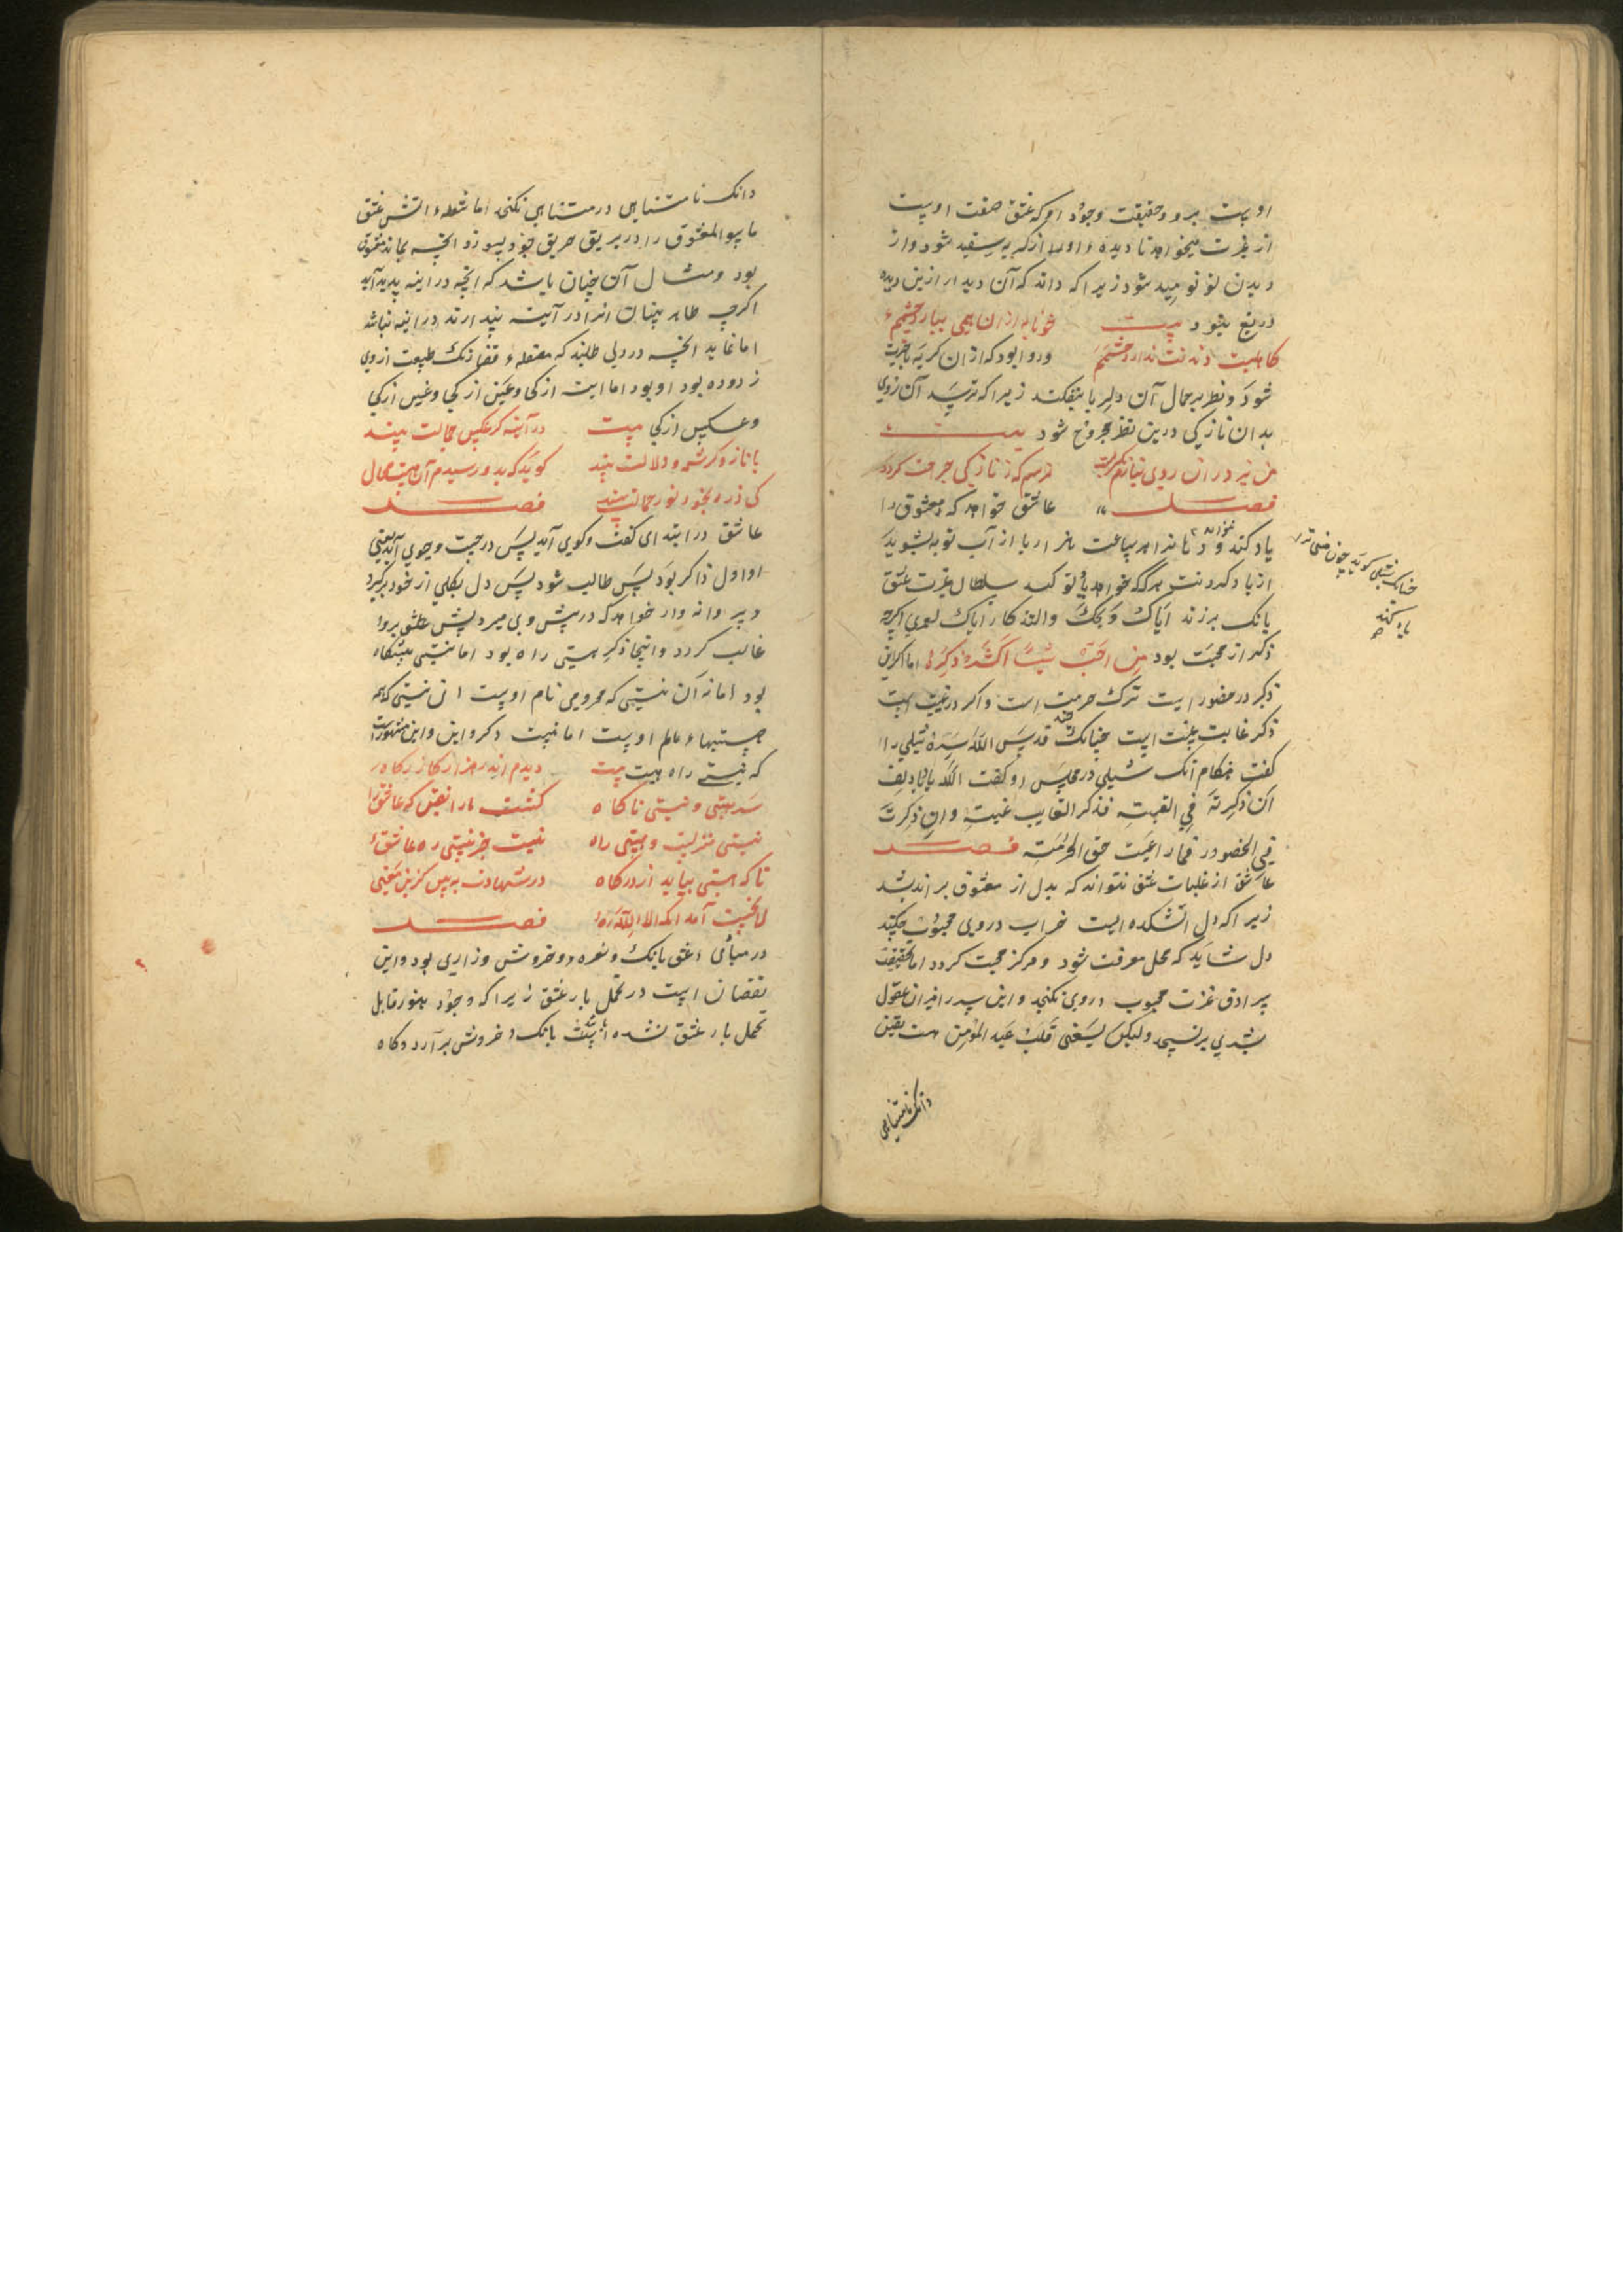 اوست برو و حقیقت وجود او که عشق صفت اوست
از غیرت میخواهد تا دیده او از گریه سفید شود و از
دیدن نومید شود زیرا که داند که آن دیدار ازین دیده
دریغ بود بیت خونابه ازان همی ببارد چشمم
کاهلیت دیدنت ندارد چشمم و روا بود که ازان گریه با خبرت
شود و نظر بر جمال آن دلربا نیفکند زیرا که ترسد آن روی
بدان نازکی درین نظر مجروح شود بیت
من نیز در آن روی نیارم نگریست ترسم که ز نازکی جراحت گردد
فصل عاشق خواهد که معشوق را
یاد کند و نخواهد تا هر ساعت هزار بار از آب توبه بشوید
از یاد کردنت هرگه خواهد تو کند سلطان غیرت عشق
بانگ برزند ایاک و یحک والتذکار ایاک لعمری اگرچه
ذکر از محبت بود من احب شیئا اکثر ذکره اما اگر این
ذکر در حضور است ترک حرمت است و اگر در غیبت است
ذکر غایب غیبت است چنانک جنید قدس الله سره شبلی را
گفت هنگام آنک شبلی در مجلس او گفت الله یا ابا دلف
ان ذکرته فی الغیبته فذکر الغایب غیبته وان ذکرت
فی الحضور فما راعیت حق الحرمته فصل
عاشق از غلبات عشق نتواند که بدل از معشوق براندیشد
زیرا که دل آتشکده ایست خراب در وی محبوب چکند
دل شاید که محل معرفت شود و مرکز محبت گردد اما بحقیقت
سرادق عزت محبوب دروی نگنجد و این سر را میزان عقول
بشری برنسنجد ولیکن یسعنی قلب عبد المؤمن هست یقین
چنانک شبلی گوید چون منی ترا
یاد کند
دانک نامتناهی
دانک نامتناهی در متناهی نگنجد اما شعله آتش عشق
ما سوا المعشوق را در بریق حریق خود بسوزد آنچه بماند معشوق
بود و مثال آن چنان باشد که آنچه در آینه پدید آید
اگرچه ظاهر بینان آنرا در آینه پندارند در آینه نباشد
اما نماید آنچه در دلی طلبند که بمصقله قضا زنگ طبیعت از وی
زدوده بود او بود اما این از کی و عین از کی و غین از کی
و عکس از کی بیت در آینه گر عکس جمالت بیند
با ناز و کرشمه و دلالت بیند گوید که بدو رسیدم آن هست محال
کی ذره بخود نور جمالت بیند فصل
عاشق در ابتدا گفت و گوی آید پس در جست و جوی آید یعنی
او اول ذاکر بود پس طالب شود پس دل بکلی از خود برگیرد
و پروانه وار خواهد که در پیش وی میرد پیش عشق برو
غالب گردد و اینجا ذکر هستی راه بود اما نیستی پیشگاه
بود اما نه آن نیستی که محرومی نام اوست آن نیستی که همه
هستیهاء عالم اوست اما نیست دگر و این و این مشهورست
که نیستی راه هست بیت دیدم اندر هزار کارگاه
سد هستی و نیستی ناگاه گشت ما را یقین که عاشق را
نیستی منزلیست و هستی راه نیست جز نیستی ره عاشق
تا که هستی بیابد از درگاه در شهادت بپرس کزین معنی
لا نخست آمد آنگه الا الله فصل
در مبادی عشق بانگ و نعره و خروش و زاری بود و این
نقصان است در تحمل بار عشق زیرا که وجود هنوز قابل
تحمل بار عشق نشده است بانگ و خروش برآرد و گاه